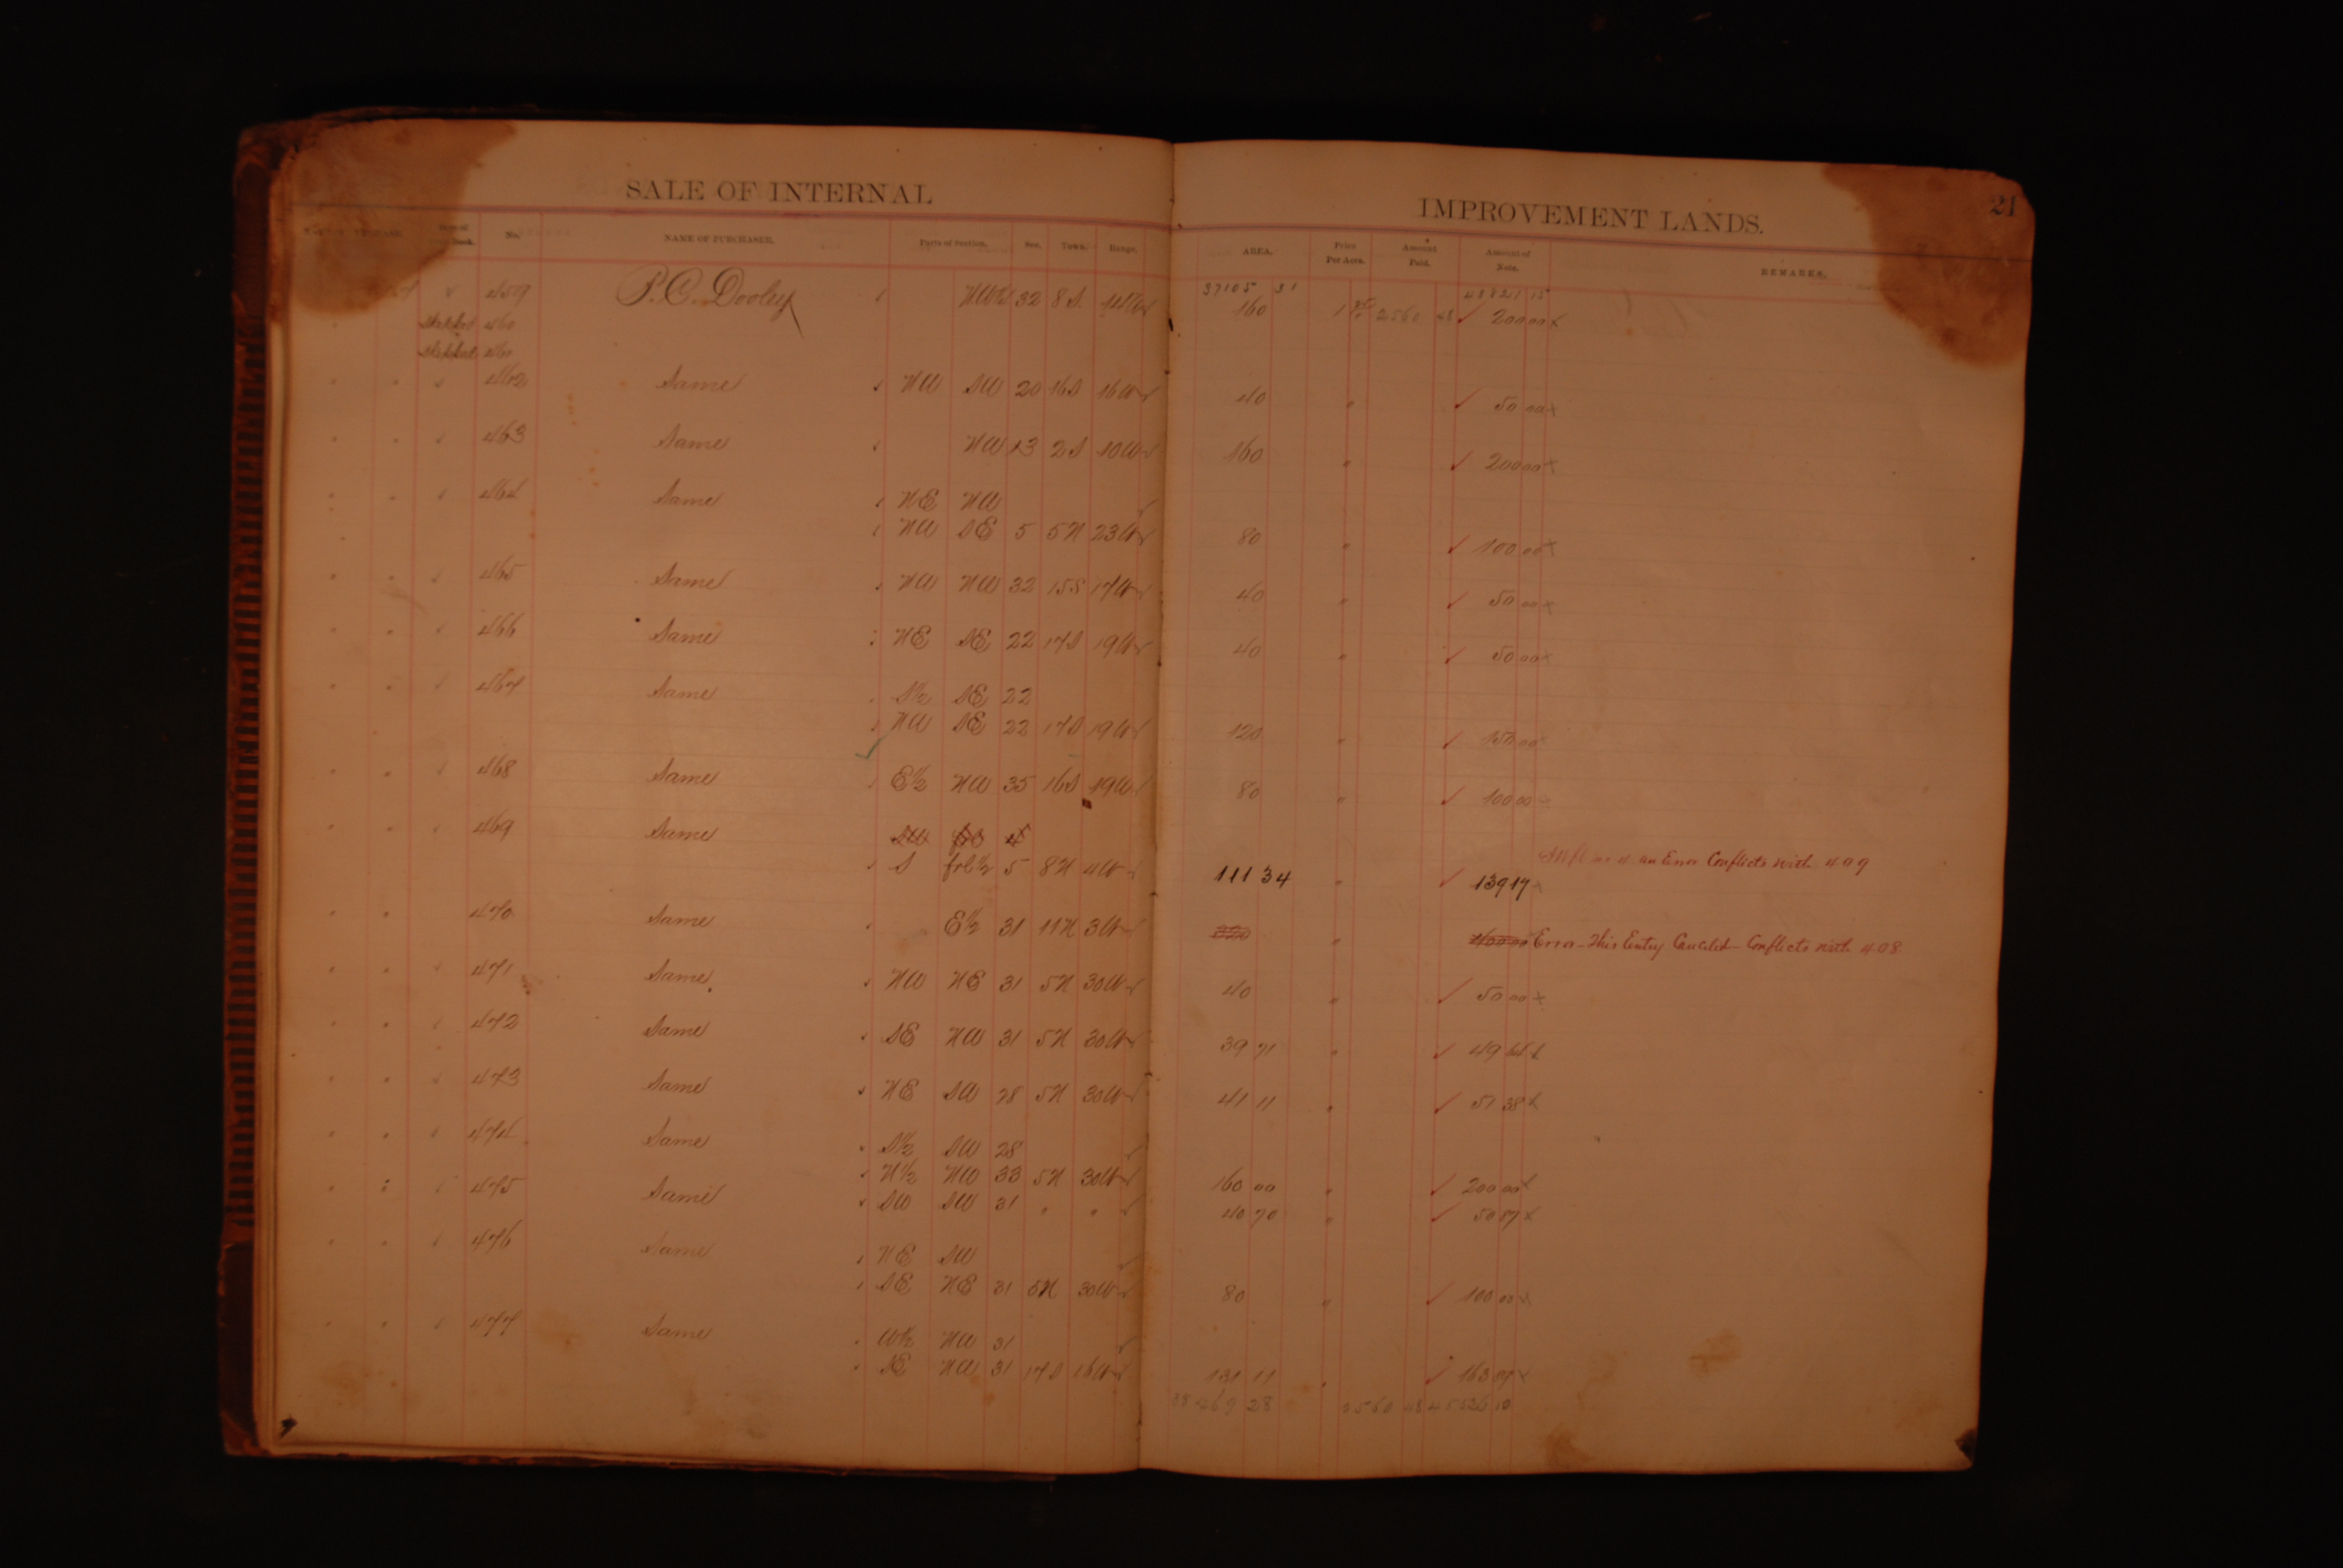 SALE OF INTERNAL IMPROVEMENT LANDS. 21
No. NAME OF PURCHASER. Parts of Section. Sec. Town. Range. AREA. Price Per Acre. Amount Paid. Amount of Note. REMARKS.
37105 31
459 P. C. Dooley 32 8 S. 160 2560 48 ✓ 200 00 x
Skipped 460
Skipped 461
" " 462 Same NW SW 20 16S 16W 40 " ✓ 50 00 x
" " 463 Same NW 13 2S 10W 160 " ✓ 200 00 x
" " 464 Same NE NW
NW SE 5 5N 23W 80 " ✓ 100 00 x
" " 465 Same NW NW 32 15S 17W 40 " ✓ 50 00 x
" " 466 Same NE SE 22 17S 19W 40 " ✓ 50 00 x
" " 467 Same S½ SE 22
NW SE 22 17S 19W 120 " ✓ 150 00
" " 468 Same E½ NW 35 16S 19W 80 " ✓ 100 00
" " 469 Same SW frl 4
an Error Conflicts with 409
S frl ½ 5 8N 4W 111 34 " ✓ 139 17
" " 470 Same E½ 31 11N 3W 320 " 400 00 Error - This Entry Canceled - Conflicts with 408
" " 471 Same NW NE 31 5N 30W 40 " ✓ 50 00 x
" " 472 Same SE NW 31 5N 30W 39 71 " ✓ 49 64 x
" " 473 Same NE SW 28 5N 30W 41 11 " ✓ 51 38 x
" " 474 Same S½ SW 28
N½ NW 33 5N 30W 160 00 " ✓ 200 00 x
" " 475 Same SW SW 31 " " 40 70 " ✓ 50 87 x
" " 476 Same NE SW
SE NE 31 5N 30W 80 " ✓ 100 00 x
" " 477 Same W½ NW 31
SE NW 31 17S 16W 131 11 " ✓ 163 87 x
2560 48